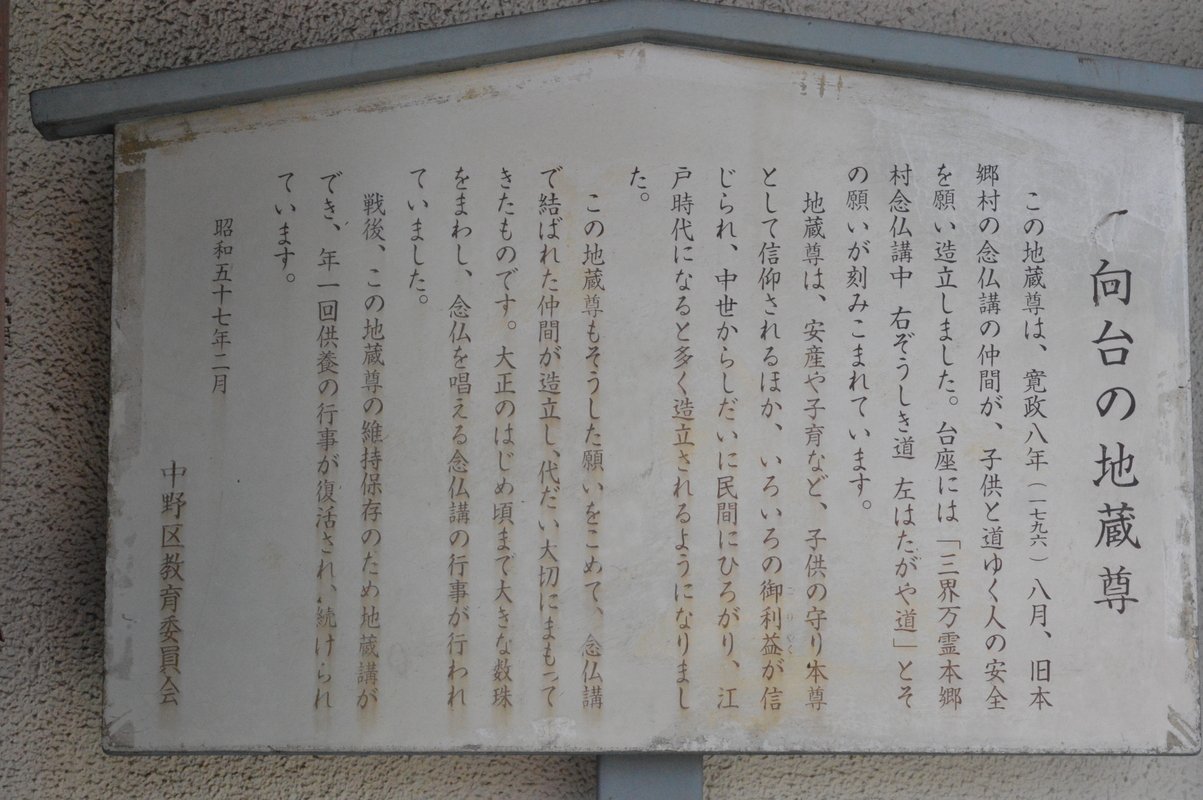 向台の地蔵尊
この地蔵尊は、寛政八年（一七九六）八月、旧本
郷村の念仏講の仲間が、子供と道ゆく人の安全
を願い造立しました。台座には「三界万霊本郷
村念仏講中　右ぞうしき道　左はたがや道」とそ
の願いが刻みこまれています。
地蔵尊は、安産や子育など、子供の守り本尊
として信仰されるほか、いろいろの御利益が信
じられ、中世からしだいに民間にひろがり、江
戸時代になると多く造立されるようになりまし
た。
この地蔵尊もそうした願いをこめて、念仏講
で結ばれた仲間が造立し、代だい大切にまもって
きたものです。大正のはじめ頃まで大きな数珠
をまわし、念仏を唱える念仏講の行事が行われ
ていました。
戦後、この地蔵尊の維持保存のため地蔵講が
でき、年一回供養の行事が復活され、続けられ
ています。
昭和五十七年二月
中野区教育委員会